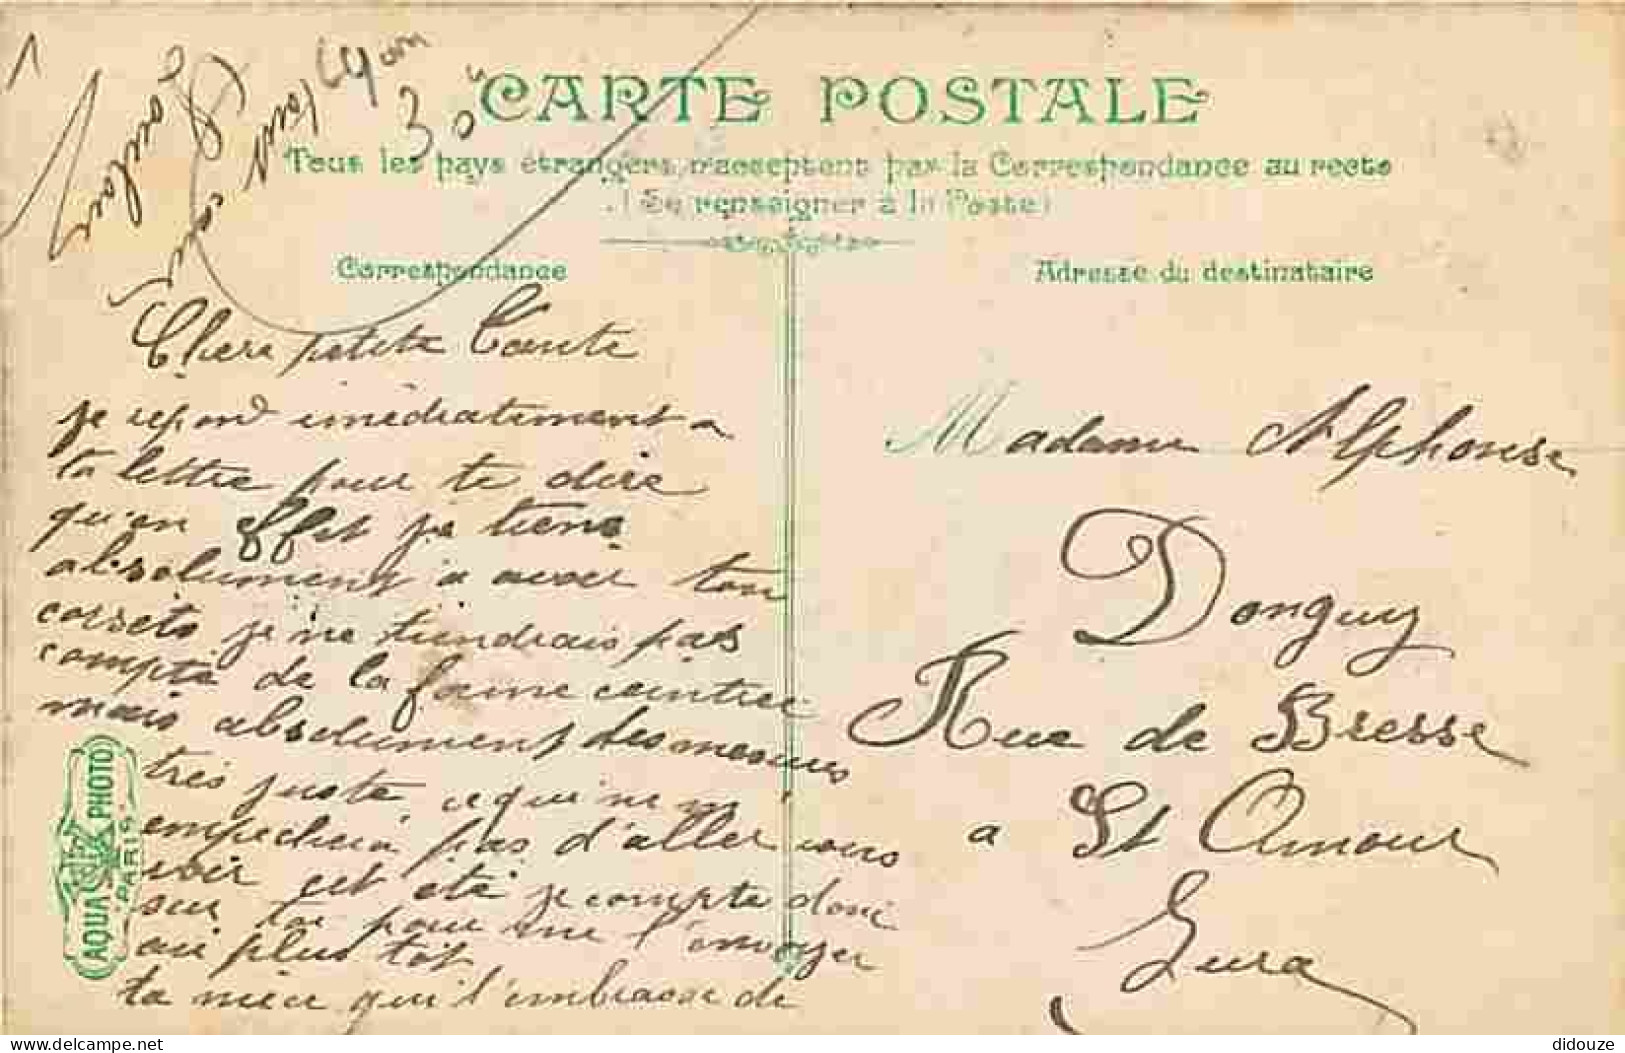 CARTE POSTALE
Tous les pays étrangers n'acceptent pas la Correspondance au recto
(Se renseigner à la Poste)
Correspondance
Adresse du destinataire
Lyon
30
Chere petite Tante
je repond imediatement a
ta lettre pour te dire
qu'en effet je tiens
absolument a avoir ton
corsets je ne tiendrais pas
compte de la forme ceintree
mais absolument des mesures
tres juste ce qui ne m'
empechera pas d'aller vous
voir cet eté je compte donc
sur toi pour me l'envoyer
au plus tot
ta niece qui t'embrasse de
Madame Alphonse
Donguy
Rue de Bresse
a St Amour
Jura
AQUA PHOTO
PARIS
delcampe.net
didouze